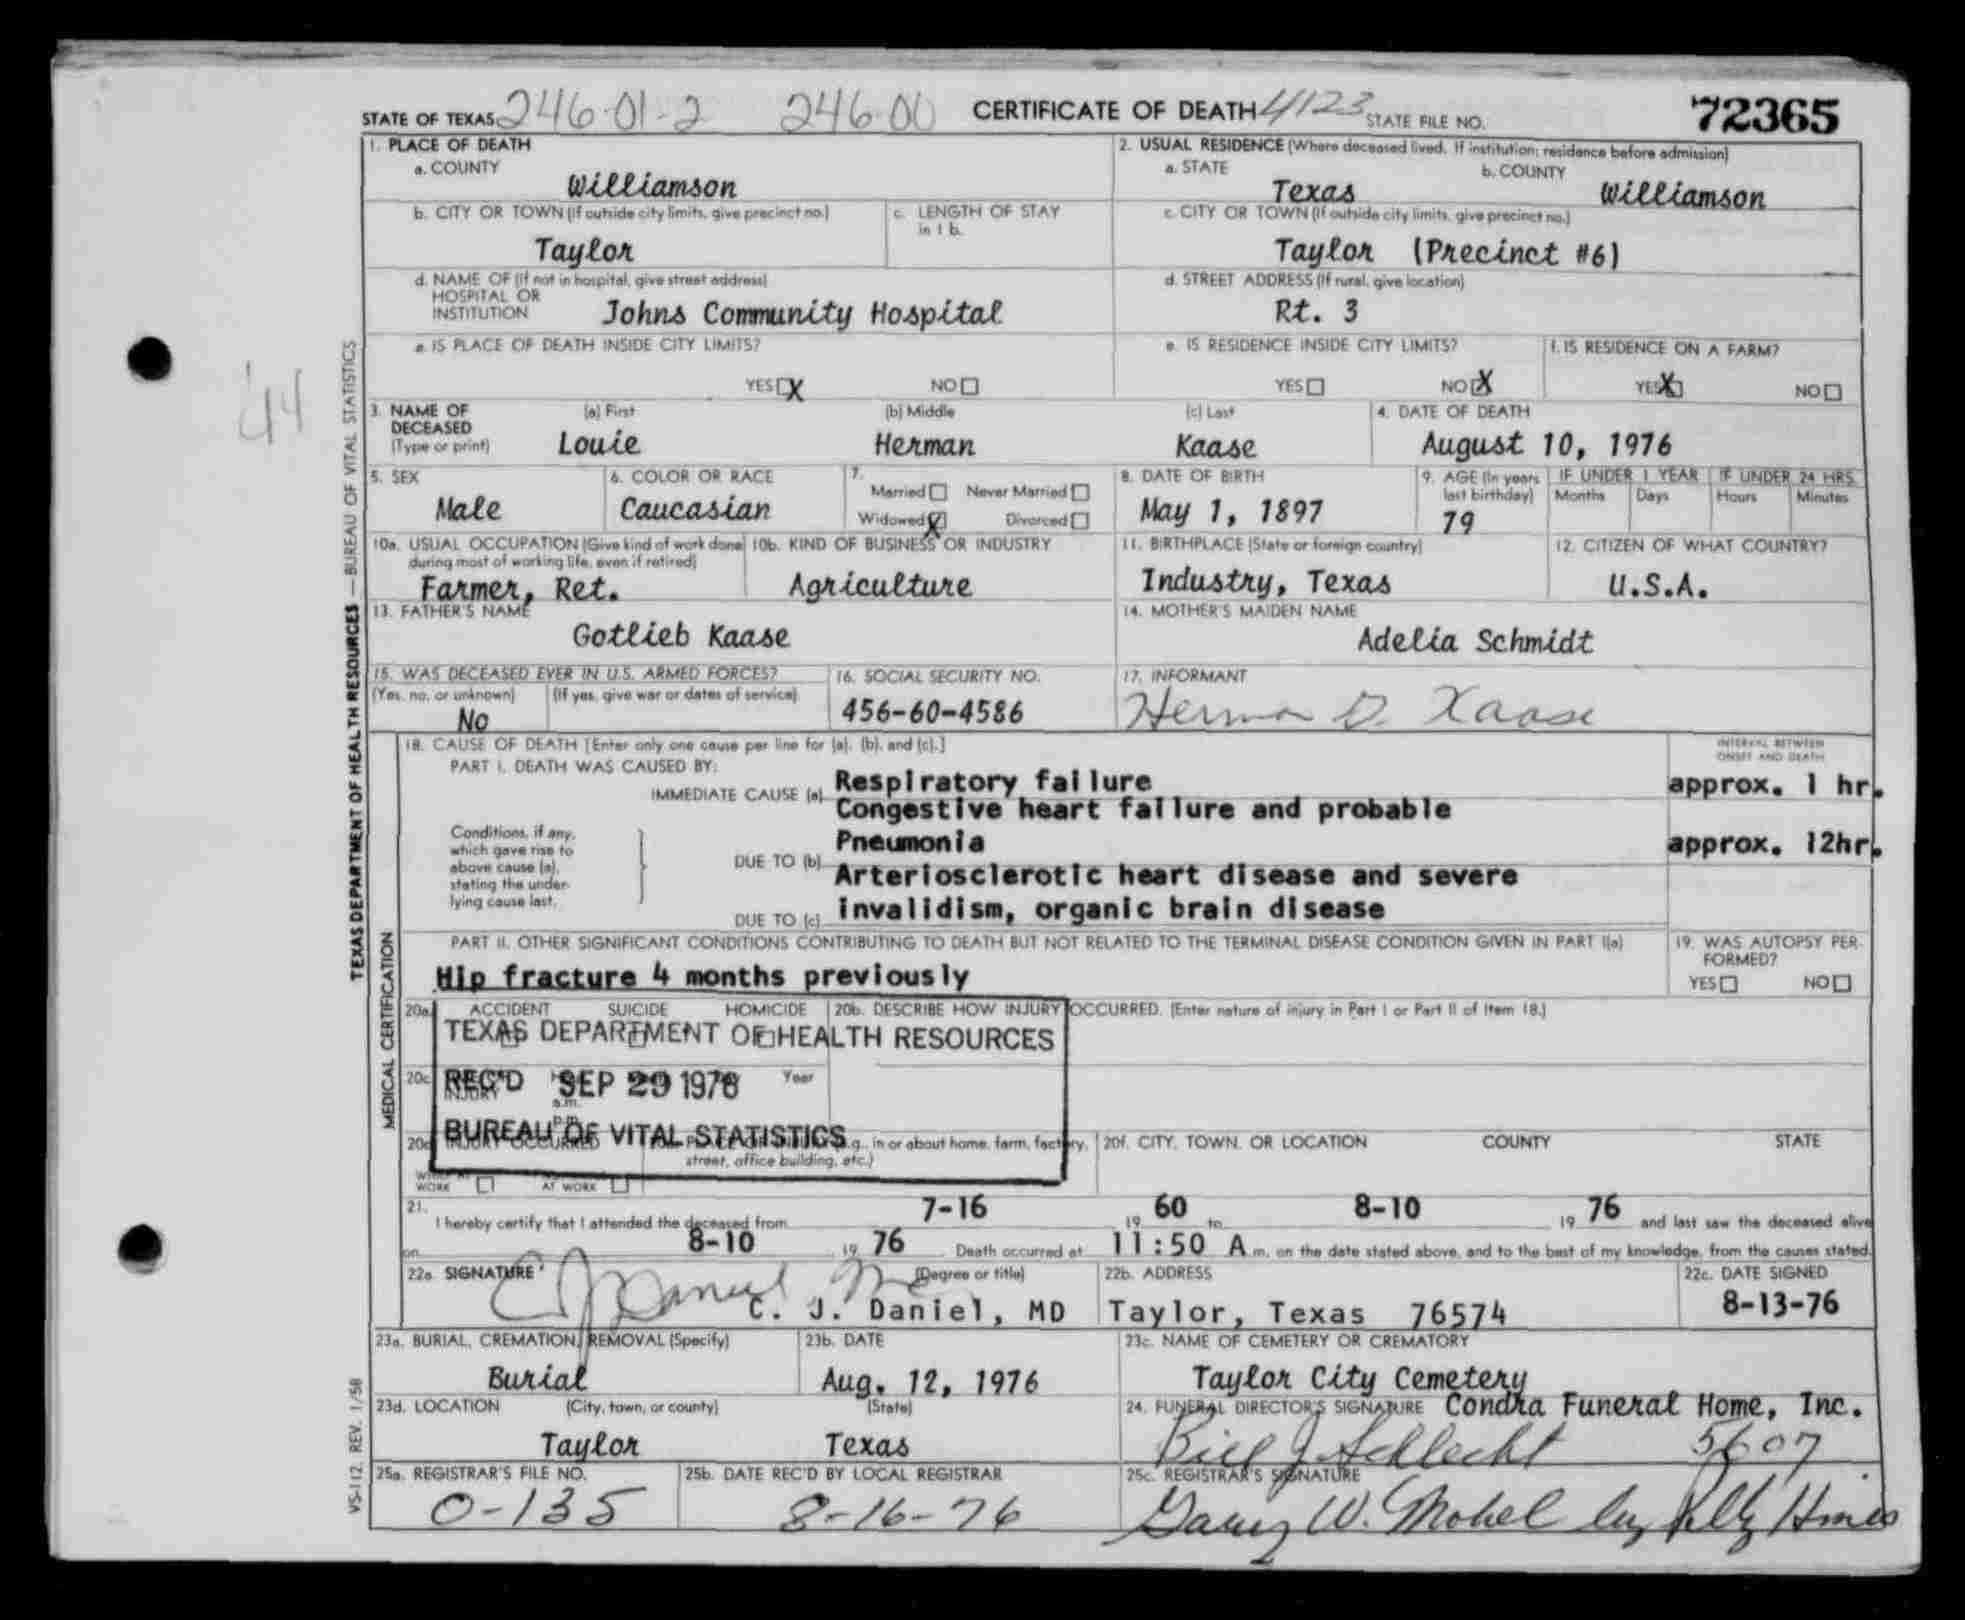 STATE OF TEXAS 246-01-2 246-00 CERTIFICATE OF DEATH 4123 STATE FILE NO. 72365
1. PLACE OF DEATH
a. COUNTY
Williamson
2. USUAL RESIDENCE (Where deceased lived. If institution: residence before admission)
a. STATE b. COUNTY
Texas Williamson
b. CITY OR TOWN (If outside city limits, give precinct no.)
Taylor
c. LENGTH OF STAY
in 1 b.
c. CITY OR TOWN (If outside city limits, give precinct no.)
Taylor (Precinct #6)
d. NAME OF (If not in hospital, give street address)
HOSPITAL OR
INSTITUTION Johns Community Hospital
d. STREET ADDRESS (If rural, give location)
Rt. 3
e. IS PLACE OF DEATH INSIDE CITY LIMITS?
YES X NO
e. IS RESIDENCE INSIDE CITY LIMITS?
YES NO X
f. IS RESIDENCE ON A FARM?
YES X NO
3. NAME OF (a) First (b) Middle (c) Last
DECEASED
(Type or print) Louie Herman Kaase
4. DATE OF DEATH
August 10, 1976
5. SEX
Male
6. COLOR OR RACE
Caucasian
7.
Married Never Married
Widowed X Divorced
8. DATE OF BIRTH
May 1, 1897
9. AGE (In years
last birthday)
79
IF UNDER 1 YEAR IF UNDER 24 HRS.
Months Days Hours Minutes
10a. USUAL OCCUPATION (Give kind of work done
during most of working life, even if retired)
Farmer, Ret.
10b. KIND OF BUSINESS OR INDUSTRY
Agriculture
11. BIRTHPLACE (State or foreign country)
Industry, Texas
12. CITIZEN OF WHAT COUNTRY?
U.S.A.
13. FATHER'S NAME
Gotlieb Kaase
14. MOTHER'S MAIDEN NAME
Adelia Schmidt
15. WAS DECEASED EVER IN U.S. ARMED FORCES?
(Yes, no, or unknown) (If yes, give war or dates of service)
No
16. SOCIAL SECURITY NO.
456-60-4586
17. INFORMANT
Herman D. Kaase
18. CAUSE OF DEATH [Enter only one cause per line for (a), (b), and (c).]
PART I. DEATH WAS CAUSED BY:
INTERVAL BETWEEN
ONSET AND DEATH
IMMEDIATE CAUSE (a) Respiratory failure approx. 1 hr.
Congestive heart failure and probable
Conditions, if any,
which gave rise to
above cause (a),
stating the under-
lying cause last.
DUE TO (b) Pneumonia approx. 12hr.
Arteriosclerotic heart disease and severe
DUE TO (c) invalidism, organic brain disease
PART II. OTHER SIGNIFICANT CONDITIONS CONTRIBUTING TO DEATH BUT NOT RELATED TO THE TERMINAL DISEASE CONDITION GIVEN IN PART I(a)
Hip fracture 4 months previously
19. WAS AUTOPSY PER-
FORMED?
YES NO
20a. ACCIDENT SUICIDE HOMICIDE
20b. DESCRIBE HOW INJURY OCCURRED. (Enter nature of injury in Part I or Part II of Item 18.)
TEXAS DEPARTMENT OF HEALTH RESOURCES
20c. INJURY a.m. p.m. Year
REC'D SEP 29 1976
BUREAU OF VITAL STATISTICS
20d. INJURY OCCURRED
WORK AT WORK
e.g., in or about home, farm, factory,
street, office building, etc.)
20f. CITY, TOWN, OR LOCATION COUNTY STATE
21.
I hereby certify that I attended the deceased from 7-16 19 60 to 8-10 19 76 and last saw the deceased alive
on 8-10 19 76. Death occurred at 11:50 A m. on the date stated above, and to the best of my knowledge, from the causes stated.
22a. SIGNATURE (Degree or title)
CJ Daniel MD
C. J. Daniel, MD
22b. ADDRESS
Taylor, Texas 76574
22c. DATE SIGNED
8-13-76
23a. BURIAL, CREMATION, REMOVAL (Specify)
Burial
23b. DATE
Aug. 12, 1976
23c. NAME OF CEMETERY OR CREMATORY
Taylor City Cemetery
23d. LOCATION (City, town, or county) (State)
Taylor Texas
24. FUNERAL DIRECTOR'S SIGNATURE Condra Funeral Home, Inc.
Bill J Schlecht 5607
25a. REGISTRAR'S FILE NO.
0-135
25b. DATE REC'D BY LOCAL REGISTRAR
8-16-76
25c. REGISTRAR'S SIGNATURE
W. by
TEXAS DEPARTMENT OF HEALTH RESOURCES — BUREAU OF VITAL STATISTICS
MEDICAL CERTIFICATION
VS-112, REV. 1/58
44